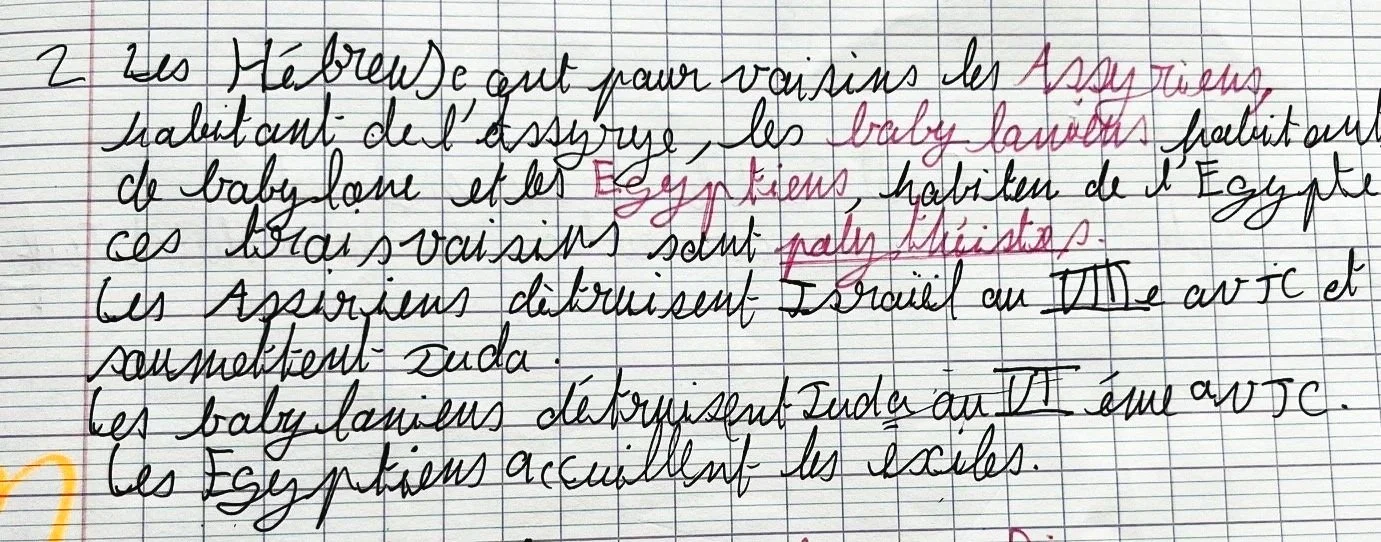 2 Les Hébreuse ont pour voisins les Assyriens,
habitant de l'Assyrye, les babyloniens habitant
de babylone et les Egyptiens, habiten de l'Egypte
ces trois voisins sont polythéistes.
Les Assiriens détruisent Israüël au VIIIe av JC et
soumettent Juda.
Les babyloniens détruisent Juda au VI éme av JC.
Les Egyptiens accuillent les éxilés.